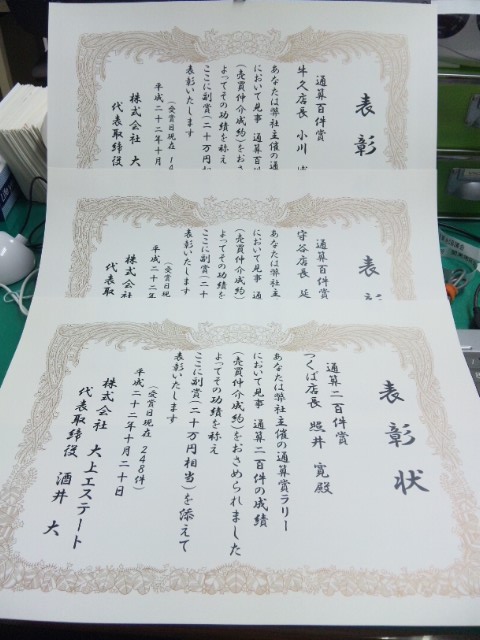 表彰
通算百件賞
牛久店長 小川
あなたは弊社主催の通
において見事 通算百
(売買仲介成約)をおさ
よってその功績を称え
ここに副賞(二十万円相
表彰いたします
(受賞日現在 1
平成二十二年十月
株式会社 大
代表取締役
表彰
通算百件賞
守谷店長 延
あなたは弊社主
において見事 通
(売買仲介成約)
よってその功績
ここに副賞(二十
表彰いたします
(受賞日現
平成二十二年
株式会社
代表取
表彰状
通算二百件賞
つくば店長 照井 寛殿
あなたは弊社主催の通算賞ラリー
において見事 通算二百件の成績
(売買仲介成約)をおさめられました
よってその功績を称え
ここに副賞(二十万円相当)を添えて
表彰いたします
(受賞日現在 248件)
平成二十二年十月二十日
株式会社 大上エステート
代表取締役 酒井 大